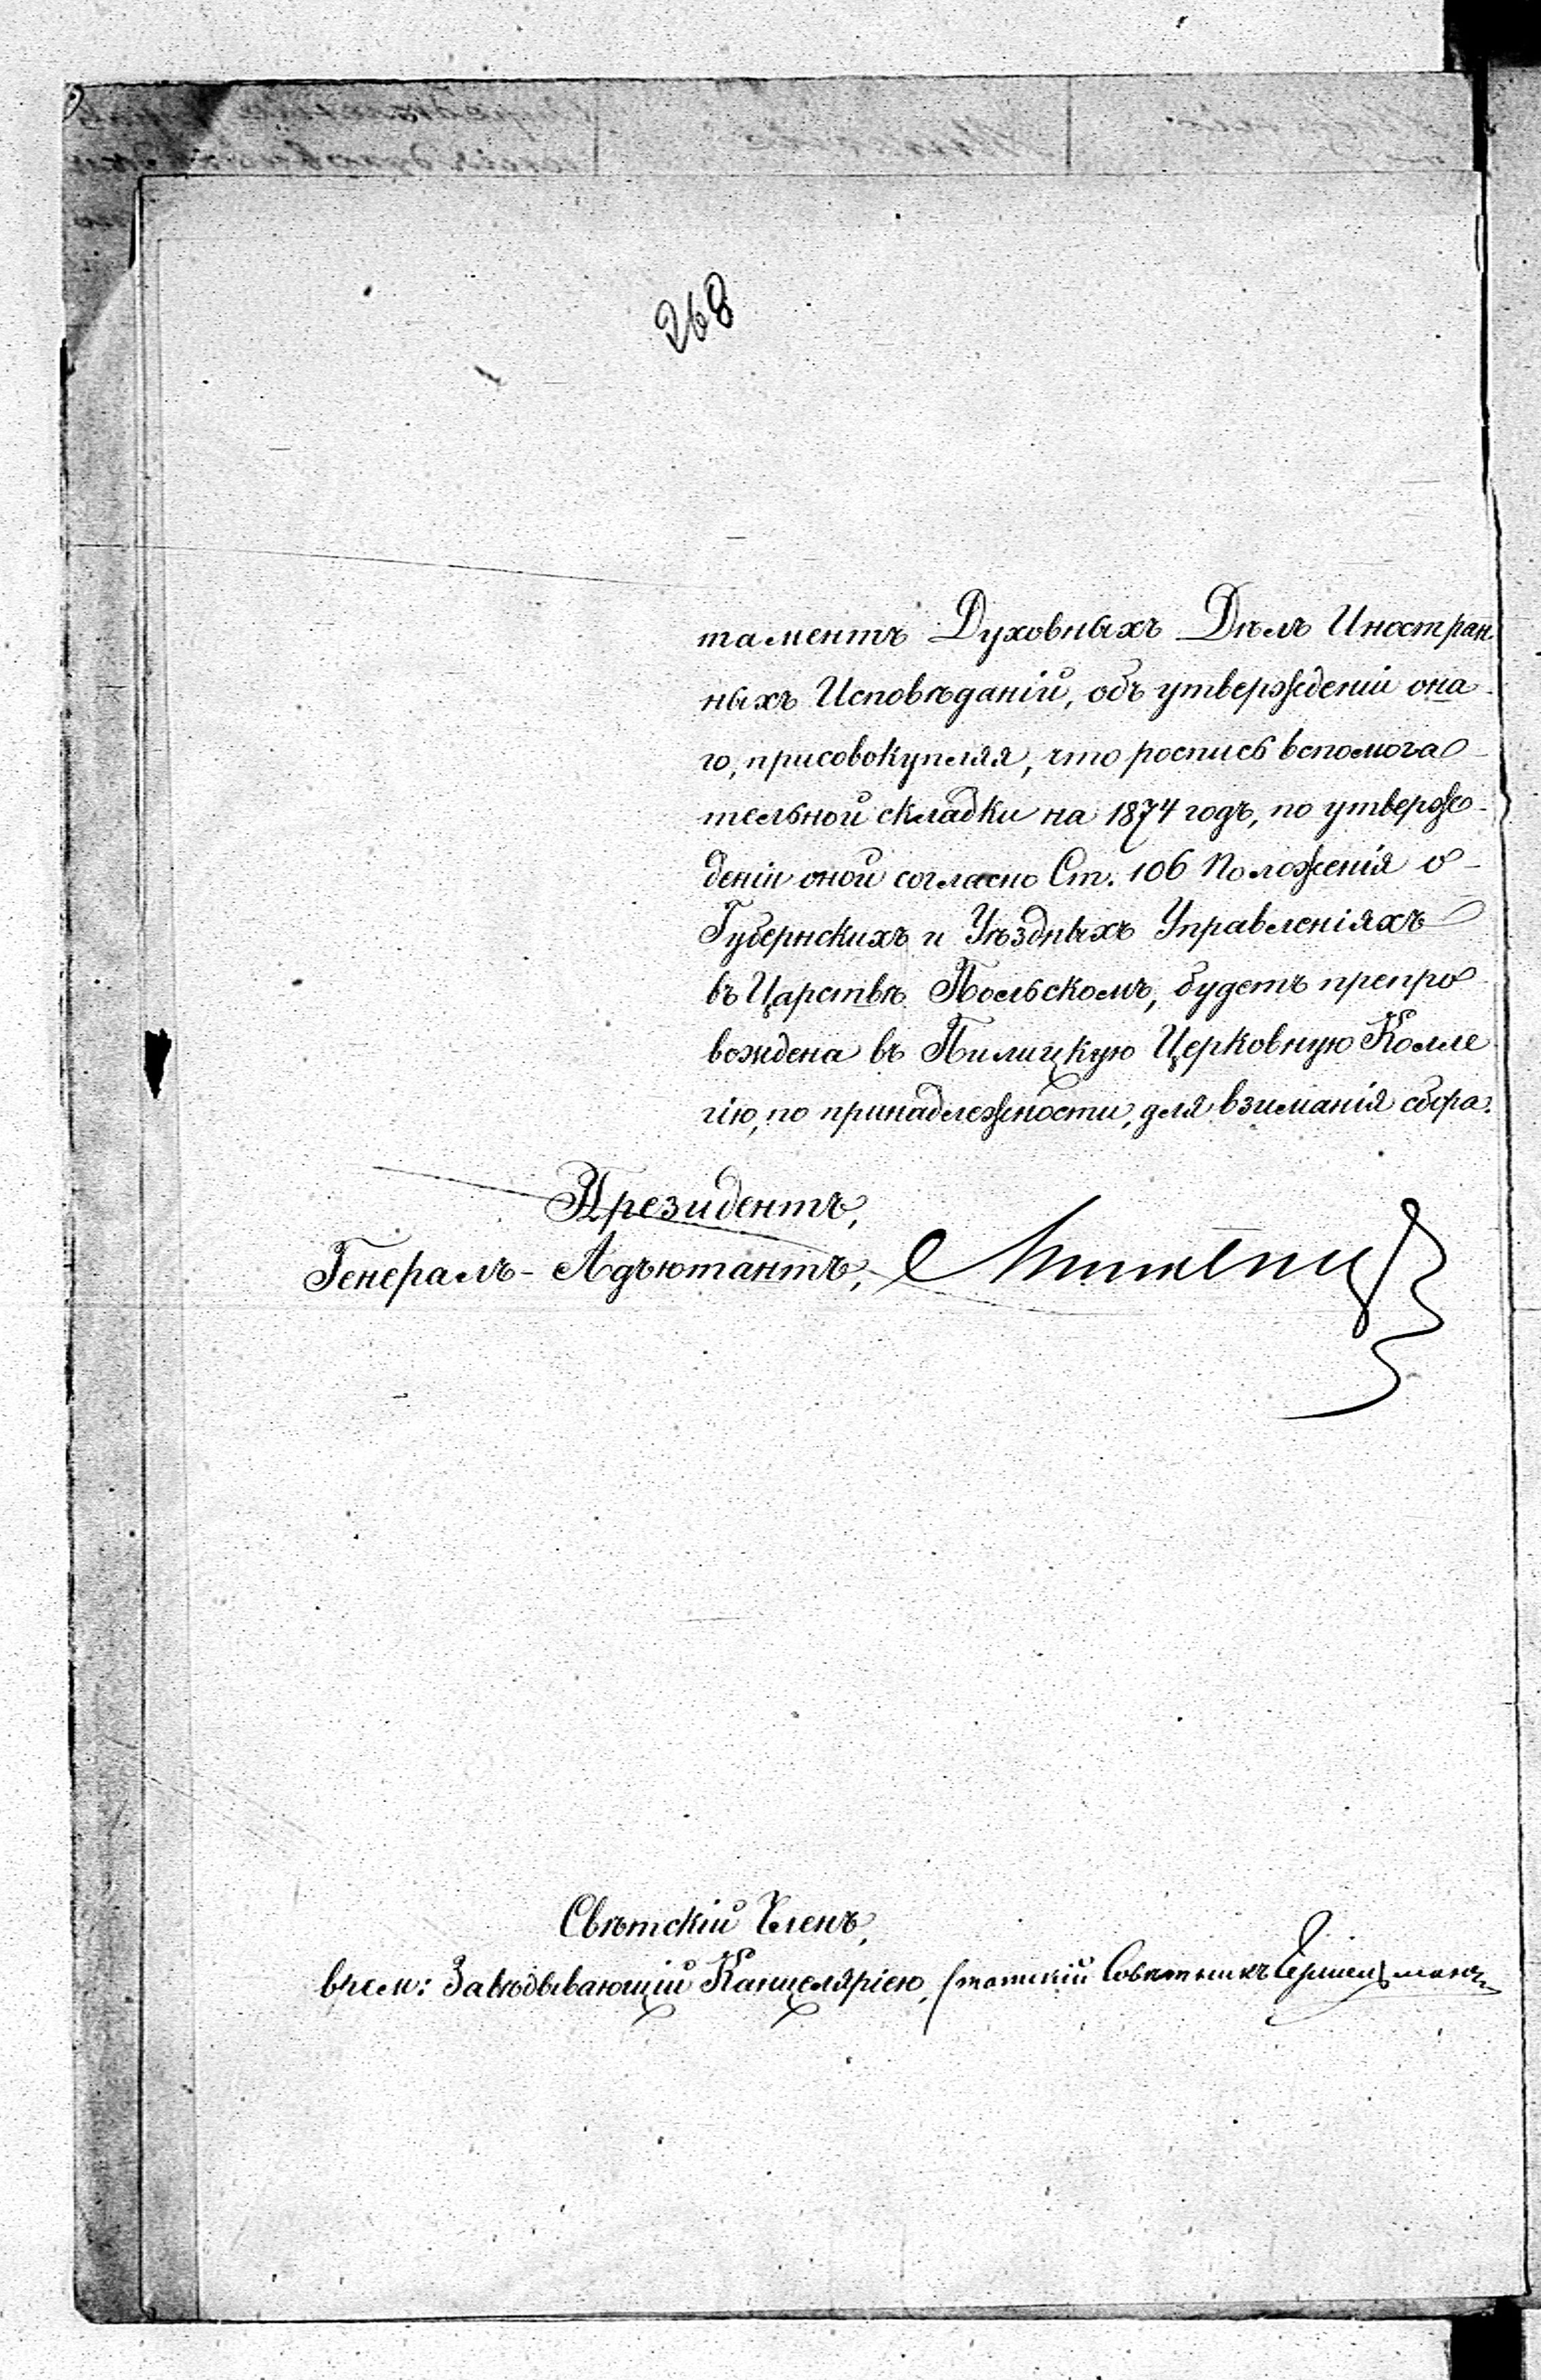 268
таментъ Духовныхъ Дѣлъ Иностран
ныхъ Исповѣданій, объ утвержденіи она-
го, присовокупляя, что роспись вспомога-
тельной складки на 1874 годъ, по утверж-
деніи оной согласно Ст. 106 Положенія о
Губернскихъ и Уѣздныхъ Управленіяхъ
въ Царствѣ Польскомъ, будетъ препро
вождена въ Пилицкую Церковную Колле
гію, по принадлежности, для взиманія сбора.
Президентъ,
Генералъ-Адъютантъ,
Свѣтскій Членъ,
врем: Завѣдывающій Канцеляріею, Статскій Совѣтникъ